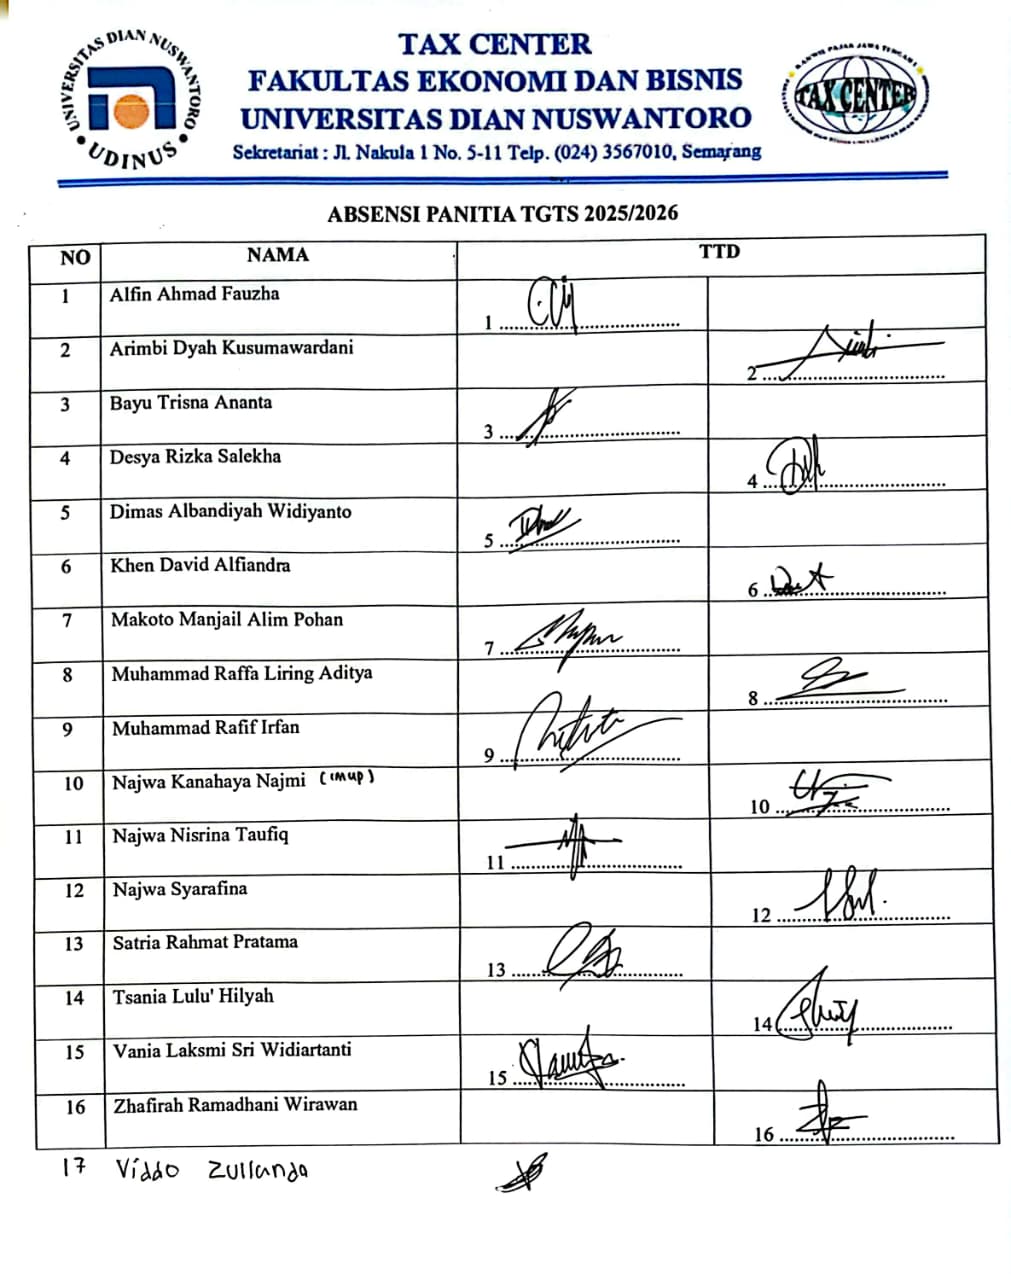 UNIVERSITAS DIAN NUSWANTORO
UDINUS
TAX CENTER
FAKULTAS EKONOMI DAN BISNIS
UNIVERSITAS DIAN NUSWANTORO
Sekretariat : Jl. Nakula 1 No. 5-11 Telp. (024) 3567010, Semarang
TAX CENTER
ABSENSI PANITIA TGTS 2025/2026
NO NAMA TTD
1 Alfin Ahmad Fauzha 1
2 Arimbi Dyah Kusumawardani 2
3 Bayu Trisna Ananta 3
4 Desya Rizka Salekha 4
5 Dimas Albandiyah Widiyanto 5
6 Khen David Alfiandra 6
7 Makoto Manjail Alim Pohan 7
8 Muhammad Raffa Liring Aditya 8
9 Muhammad Rafif Irfan 9
10 Najwa Kanahaya Najmi (imup) 10
11 Najwa Nisrina Taufiq 11
12 Najwa Syarafina 12
13 Satria Rahmat Pratama 13
14 Tsania Lulu' Hilyah 14
15 Vania Laksmi Sri Widiartanti 15
16 Zhafirah Ramadhani Wirawan 16
17 Viddo Zullanda